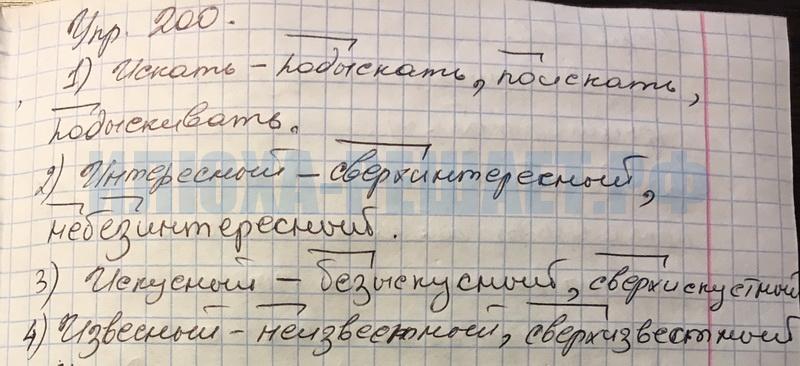 Упр. 200.
1) Искать – подыскать, поискать,
подыскивать.
2) Интересный – сверхинтересный,
небезинтересный.
3) Искусный – безыскусный, сверхискустный
4) Извесный – неизвестный, сверхизвестный
ИЛЮХА-РЕШАЕТ.РФ